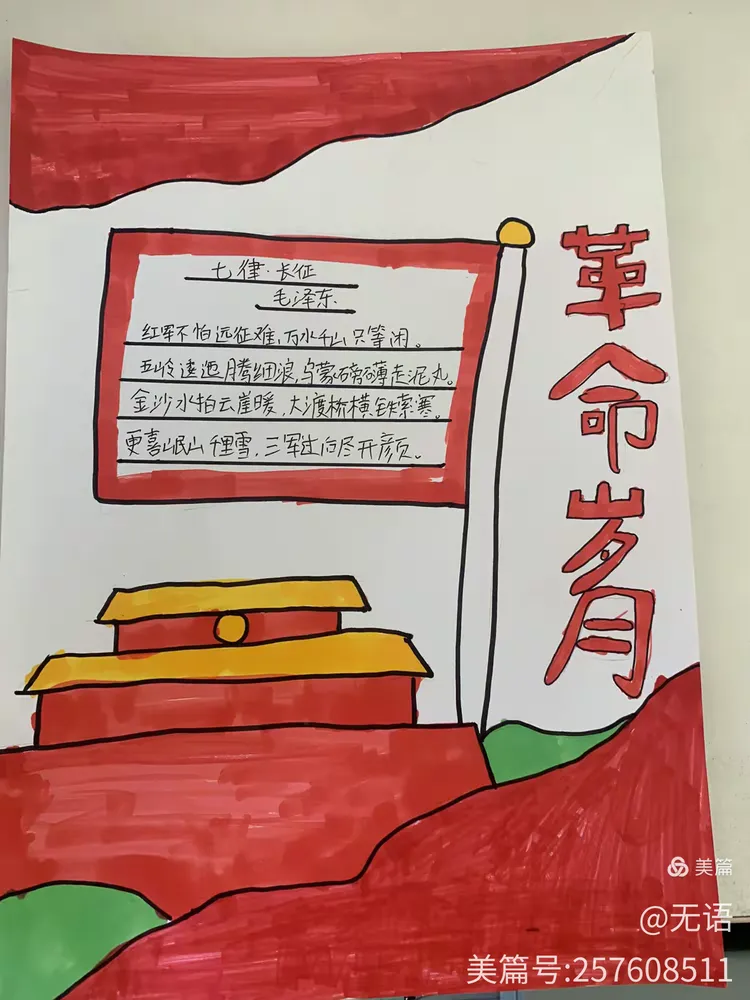 七律·长征
毛泽东
红军不怕远征难,万水千山只等闲。
五岭逶迤腾细浪,乌蒙磅礴走泥丸。
金沙水拍云崖暖,大渡桥横铁索寒。
更喜岷山千里雪,三军过后尽开颜。
革命岁月
美篇
@无语
美篇号:257608511